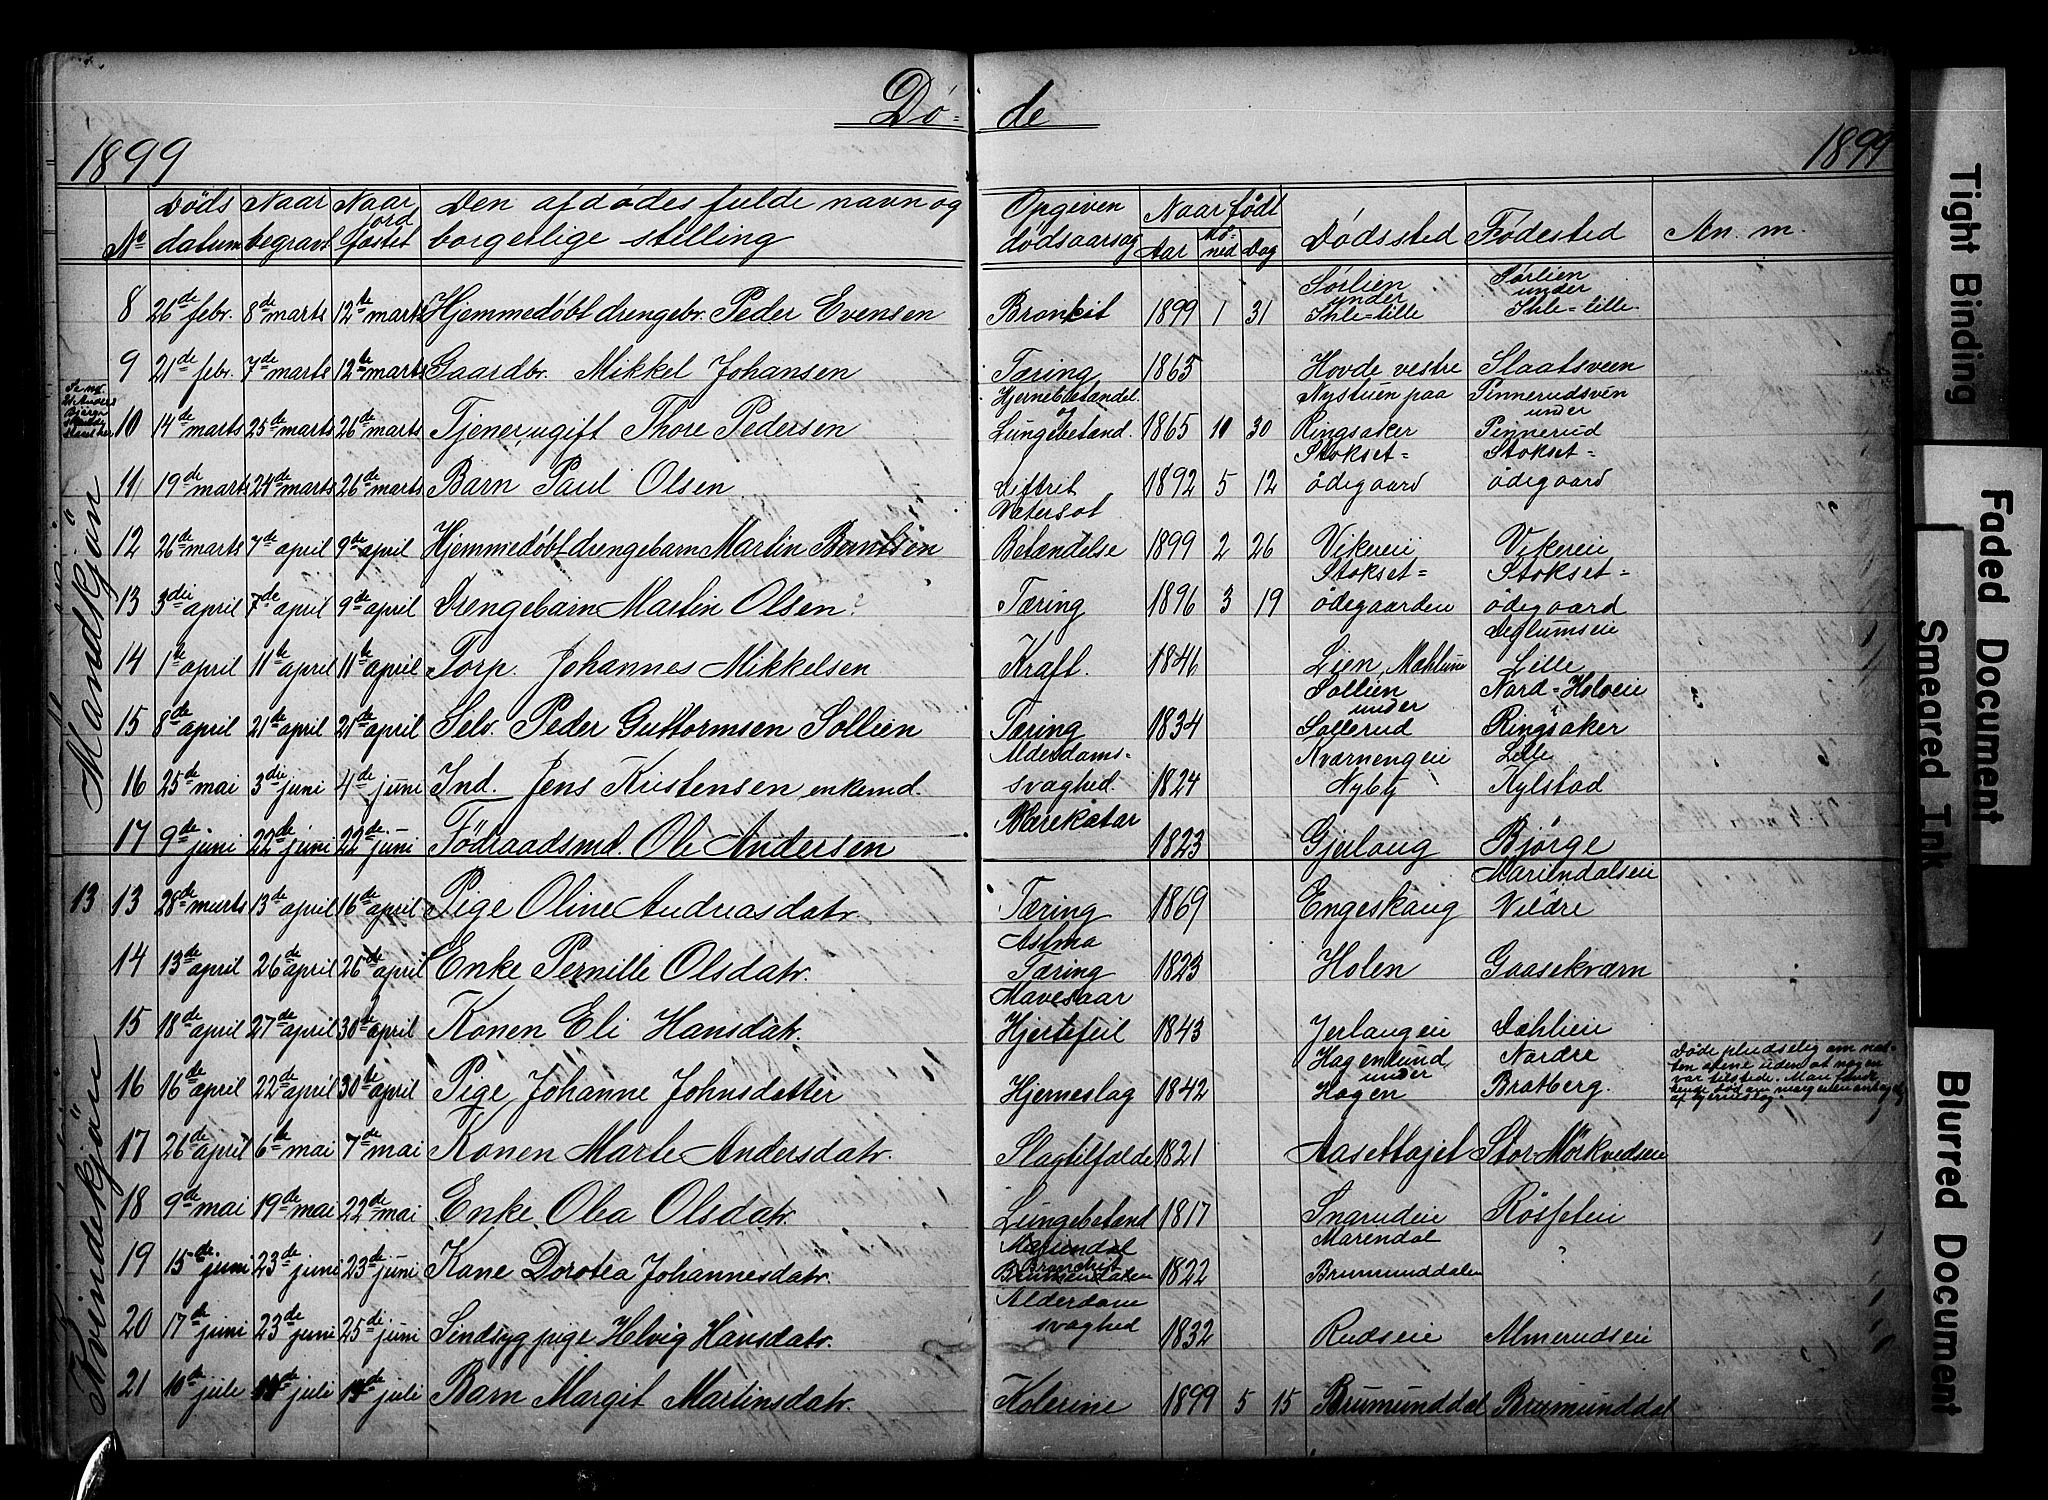 Dø= de
1899 1899
No Døds datum Naar begravt Naar jord fæstet Den afdødes fulde navn og borgerlige stilling Opgiven dødsaarsag Naar født Aar Må-ned Dag Dødssted Fødested An. m.
Mandkjön
8 26de febr. 8de marts 12te marts Hjemmedøbt drengebr. Peder Evensen Bronkit 1899 1 31 Sørlien under Ihle-lille Sørlien under Ihle-lille
9 21de febr. 7de marts 12te marts Gaardbr. Mikkel Johansen Tæring 1865 Hovde vestre Slaatsveen
10 14de marts 25de marts 26de marts Tjener ugift Thore Pedersen Hjernebetændel. og Lungebetænd. 1865 10 30 Nystuen paa Ringsaker Pinnerudsven under Pinnerud
11 19de marts 24de marts 26de marts Barn Paul Olsen Diftrit 1892 5 12 Stokset= ødegaard Stokset= ødegaard
12 26de marts 7de april 9de april Hjemmedøbt drengebarn Martin Berntsen Vatersot Betændelse 1899 2 26 Vikereie Vikereie
13 3die april 7de april 9de april Drengebarn Martin Olsen Tæring 1896 3 19 Stokset= ødegaarden Stokset= ødegaard
14 1te april 11te april 11te april Torp. Johannes Mikkelsen Kræft. 1846 Lien, Mæhlum Deglumseie Lille
15 8de april 21de april 21de april Selv. Peder Guttormsen Sollien Tæring 1834 Sollien under Sollerud Nord-Holveie Ringsaker
16 25de mai 3die juni 4de juni Ind. Jens Kristensen enkemd. Alderdams-svaghed. 1824 Kværnengen Nyby Lille Kylstad
17 9de juni 22de juni 22de juni Födraadsmd. Ole Andersen 1823 Gjerlaug Bjørge
Kvindekjön
13 13 28de marts 13de april 16de april Pige Oline Andreasdatr. Tæring 1869 Engeskaug Mariendalseie Veldre
14 13de april 26de april 26de april Enke Pernille Olsdatr. Astma Tæring 1823 Holen Gaasekværn
15 18de april 27de april 30te april Konen Eli Hansdatr. Mavesaar Hjertefeil 1843 Jerlaugeie Dæhlien
16 16de april 22de april 30te april Pige Johanne Johnsdatter Hjerneslag 1842 Hagenlund under Hagen Nordre Bratberg. Døde pludselig om nat-ten alene uden at nogen var tilstede. Man fandt hende død om morgenen antagelig af hjerneslag.
17 26de april 6te mai 7de mai Konen Marte Andersdatr. Slagtilfælde 1821 Aasettajet Stor-Mörkvedseie
18 9de mai 19de mai 22de mai Enke Olea Olsdatr. Lungebetænd 1817 Snarudeie Røsfeteie
19 15de juni 23de juni 23de juni Kone Dorotea Johannesdatr. Bronchit 1822 Marendal Brumunddalen "
20 17de juni 23de juni 25de juni Sindsyg pige Helvig Hansdatr. Alderdom svaghed 1832 Rudseie Almerudseie
21 10de juli 14de juli 14de juli Barn Margit Martinsdatr. Kolerine 1899 5 15 Brumunddal Brumunddal
Tight Binding
Faded Document
Smeared Ink
Blurred Document